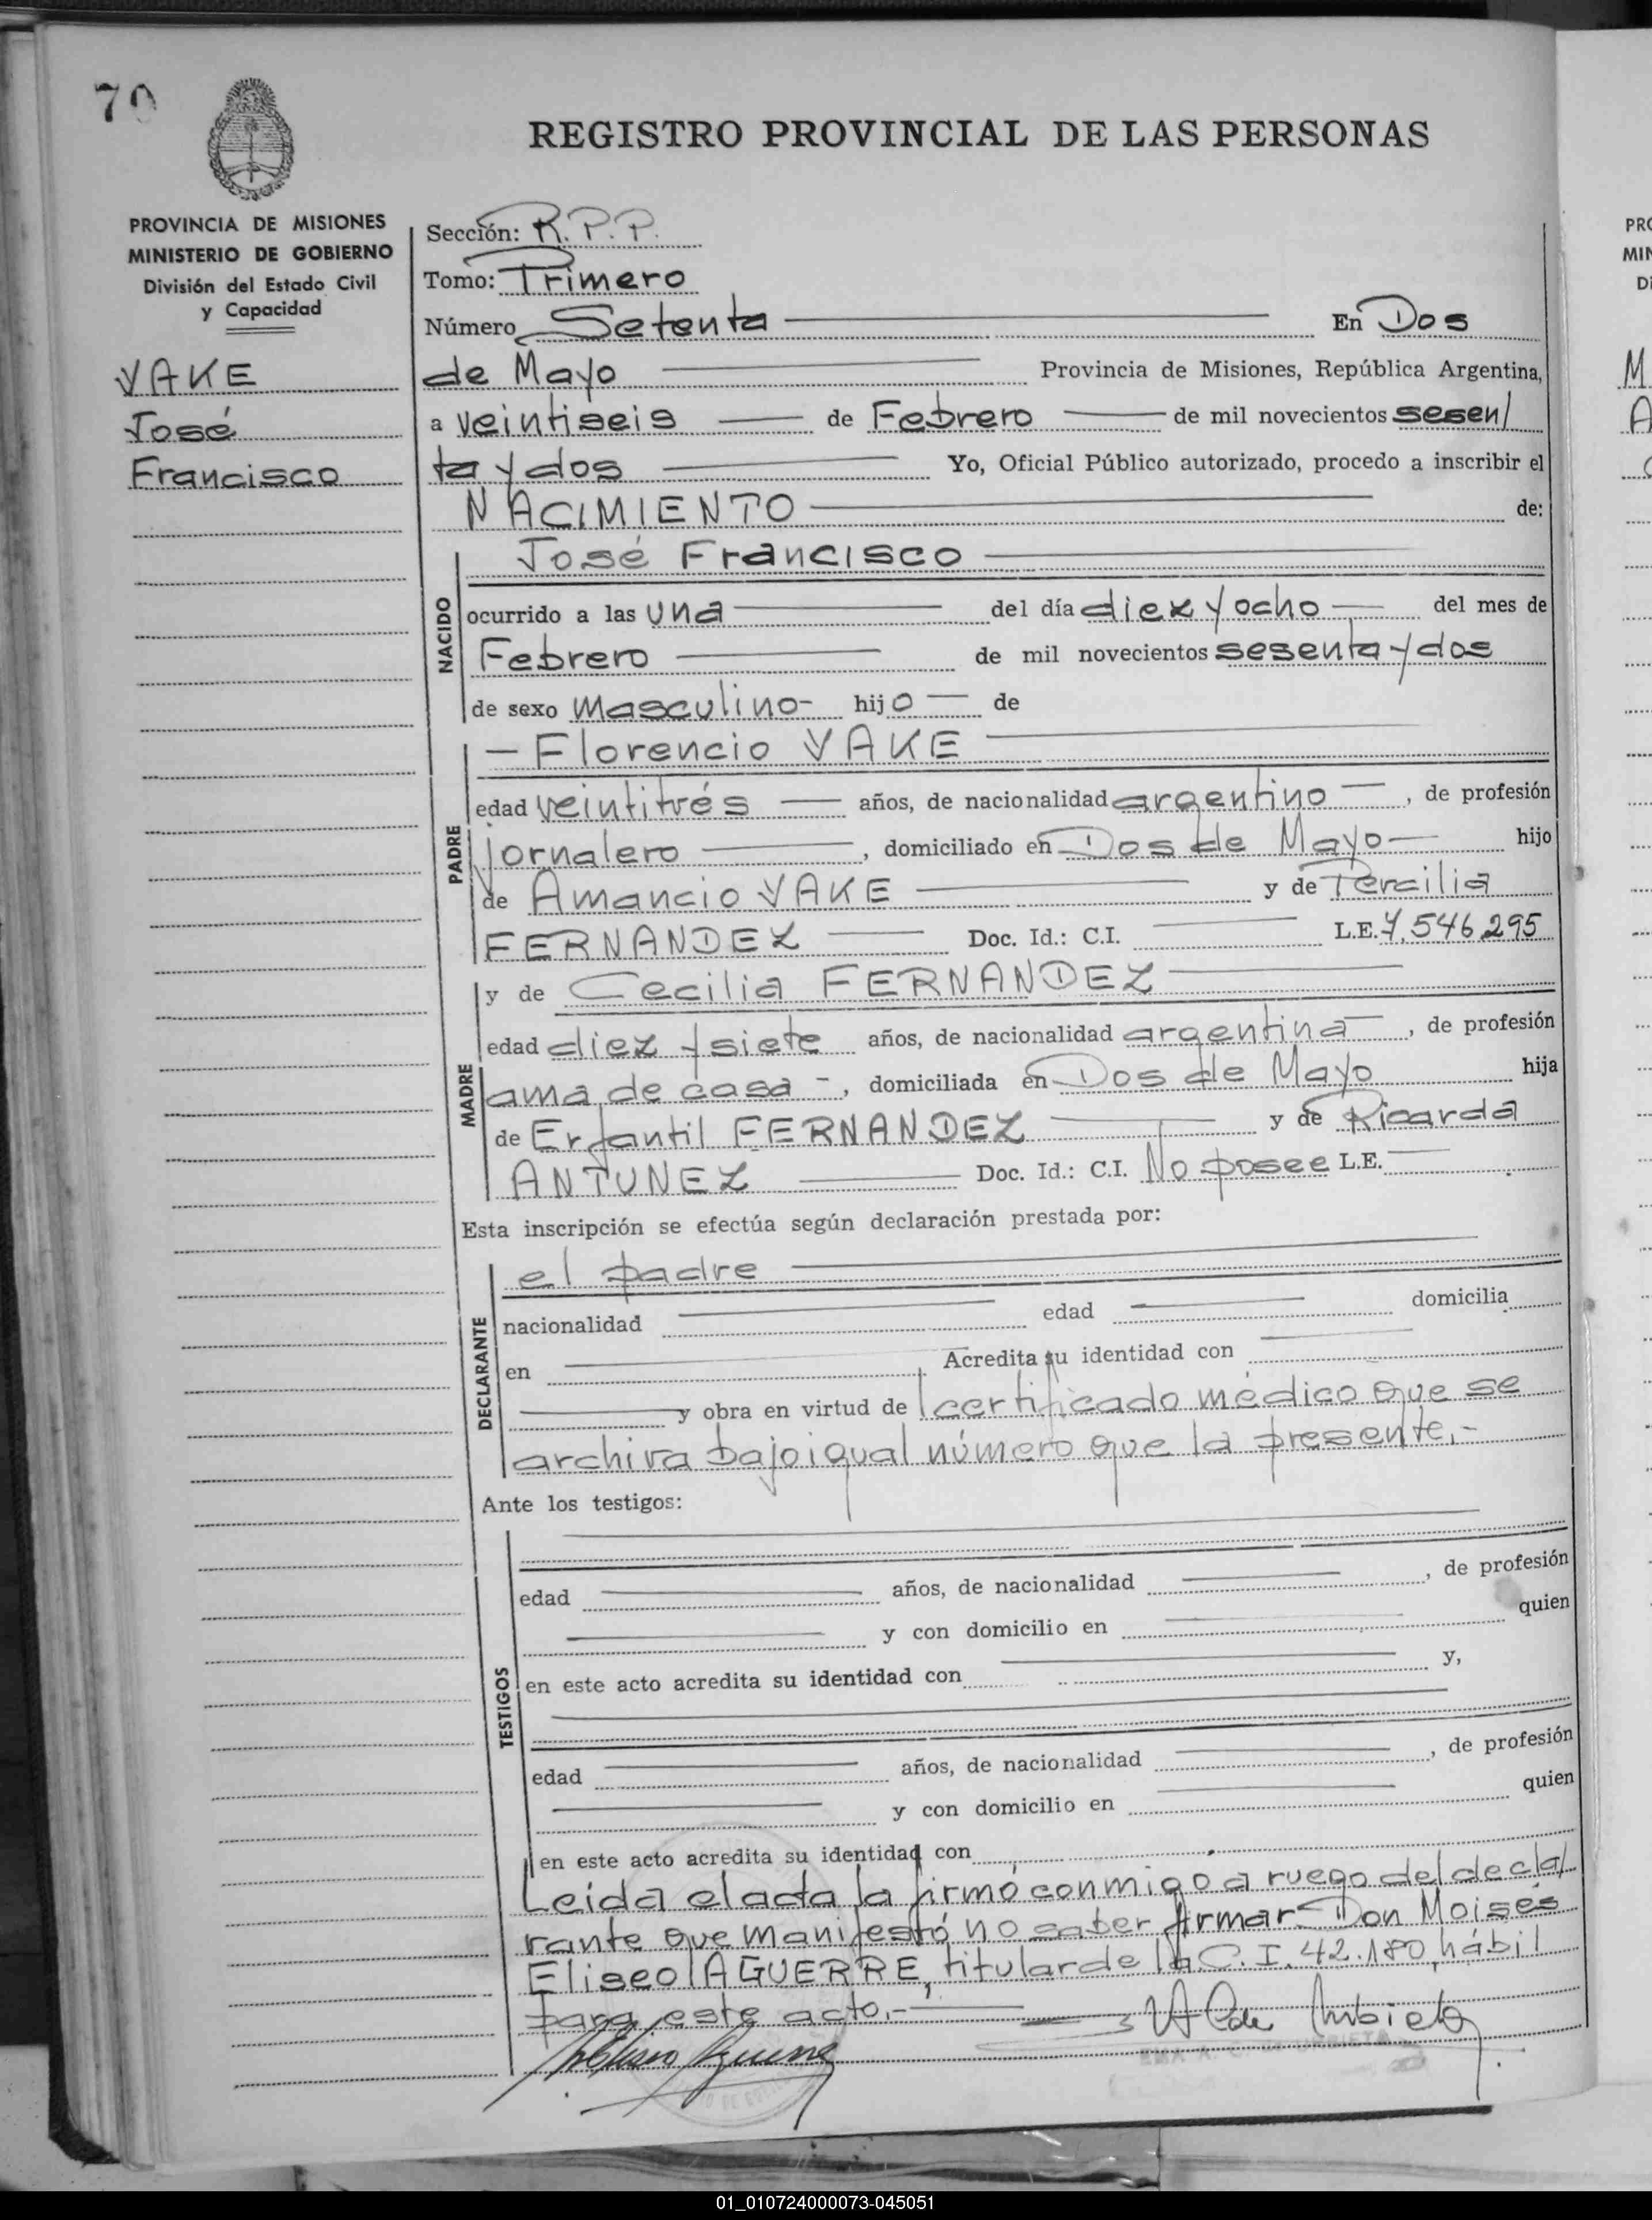 70
REGISTRO PROVINCIAL DE LAS PERSONAS
PROVINCIA DE MISIONES
MINISTERIO DE GOBIERNO
División del Estado Civil
y Capacidad
VAKE
José
Francisco
Sección: R.P.P.
Tomo: Primero
Número Setenta En Dos
de Mayo Provincia de Misiones, República Argentina,
a veintiseis de Febrero de mil novecientos sesen/
ta y dos Yo, Oficial Público autorizado, procedo a inscribir el
NACIMIENTO de:
NACIDO
José Francisco
ocurrido a las una del día diez y ocho del mes de
Febrero de mil novecientos sesenta y dos
de sexo masculino- hijo de
PADRE
Florencio VAKE
edad veintitrés años, de nacionalidad argentino, de profesión
jornalero, domiciliado en Dos de Mayo hijo
de Amancio VAKE y de Tercilia
FERNANDEZ Doc. Id.: C.I. L.E. 7.546.295
MADRE
y de Cecilia FERNANDEZ
edad diez y siete años, de nacionalidad argentina, de profesión
ama de casa -, domiciliada en Dos de Mayo hija
de Erfantil FERNANDEZ y de Ricarda
ANTUNEZ Doc. Id.: C.I. No posee L.E.
Esta inscripción se efectúa según declaración prestada por:
DECLARANTE
el padre
nacionalidad edad domicilia
en Acredita su identidad con
y obra en virtud de certificado médico que se
archiva bajo igual número que la presente.-
Ante los testigos:
TESTIGOS
edad años, de nacionalidad, de profesión
y con domicilio en quien
en este acto acredita su identidad con y,
edad años, de nacionalidad, de profesión
y con domicilio en quien
en este acto acredita su identidad con
Leída el acta la firmó conmigo a ruego del decla/
rante que manifestó no saber firmar Don Moisés
Eliseo AGUERRE, titular de la C.I. 42.180, hábil
para este acto.-
01_010724000073-045051